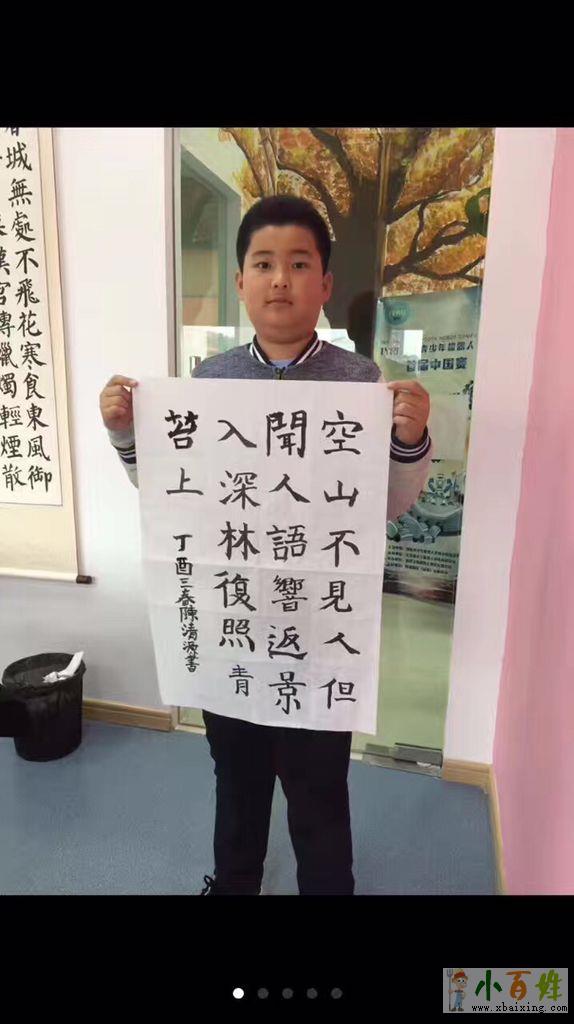 空山不見人但
聞人語響返景
入深林復照青
苔上
丁酉三春陳清書
城無處不飛花寒食東風御
漢宮傳蠟燭輕煙散
青少年机器人
首届中国赛
小百姓
www.xbaixing.com